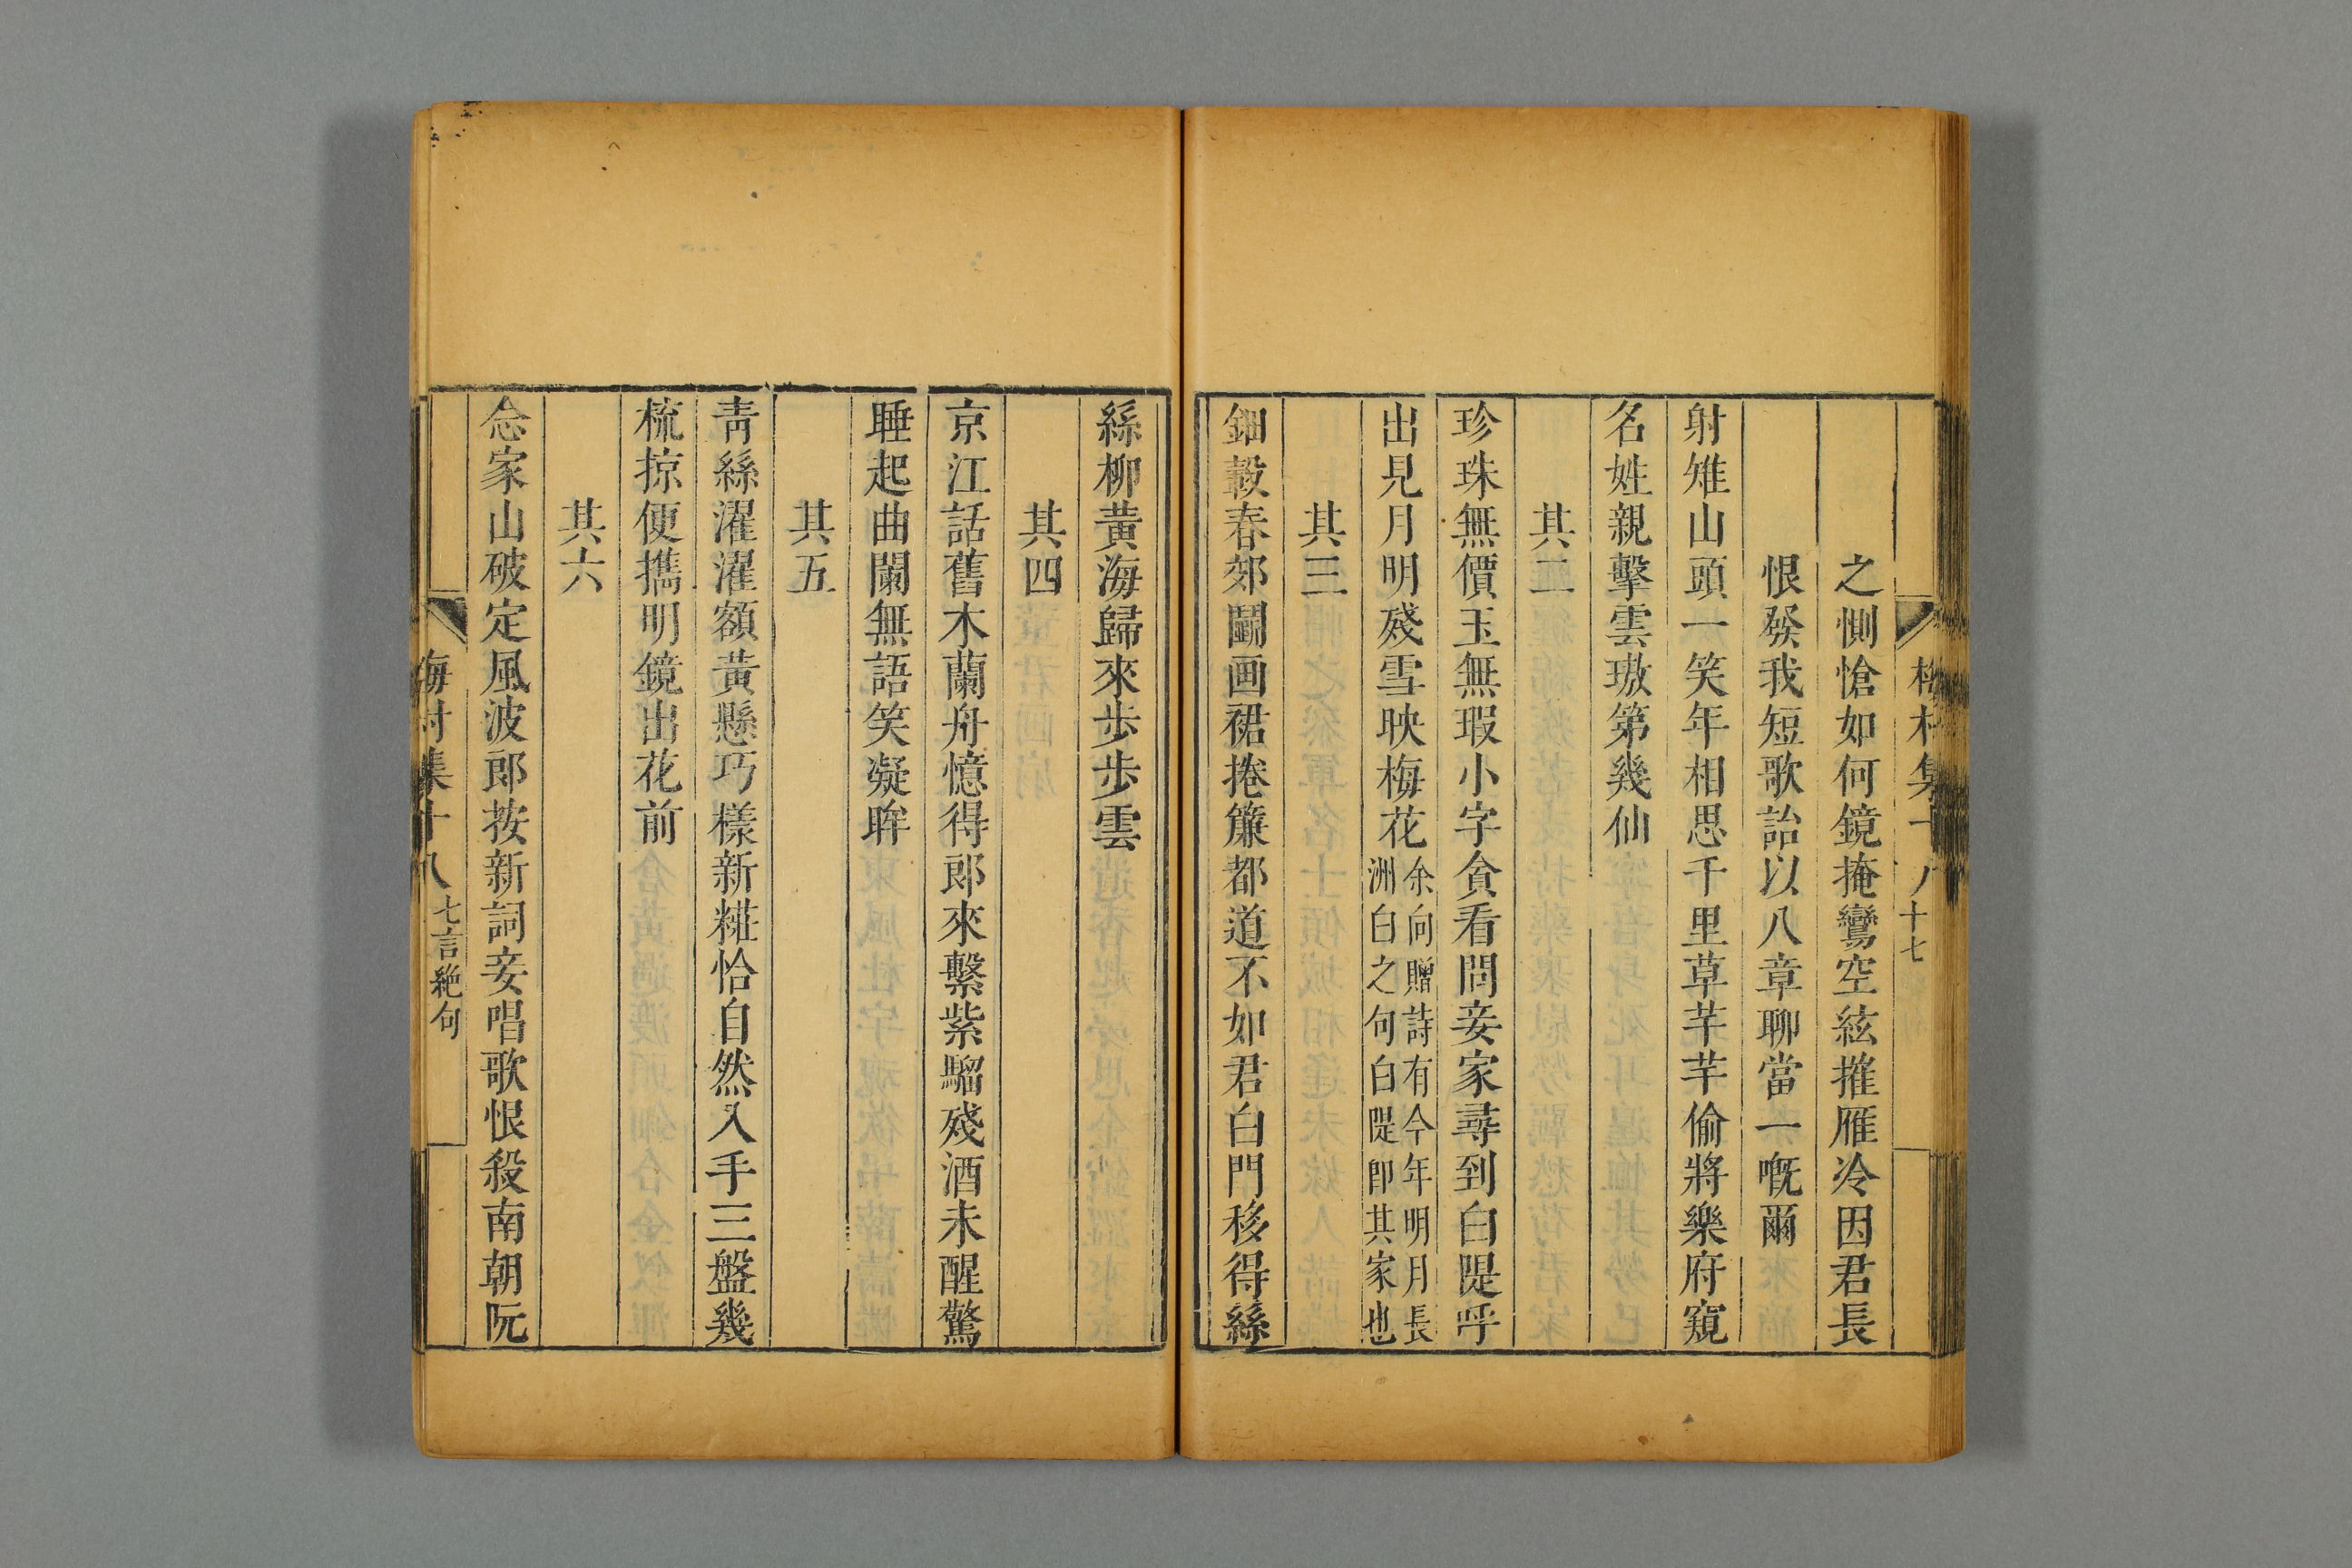 梅村集十八 十七
之惻愴如何鏡掩鸞空絃摧雁冷因君長
恨發我短歌詒以八章聊當一嘅爾
射雉山頭一笑年相思千里草芊芊偷將樂府窺
名姓親擊雲璈第幾仙
其二
珍珠無價玉無瑕小字貪看問妾家尋到白隄呼
出見月明殘雪映梅花余向贈詩有今年明月長
洲白之句白隄卽其家也
其三
鈿轂春郊鬭画裙捲簾都道不如君白門移得絲
絲柳黃海歸來步步雲
其四
京江話舊木蘭舟憶得郎來繫紫騮殘酒未醒驚
睡起曲闌無語笑凝眸
其五
靑絲濯濯額黃懸巧樣新糚恰自然入手三盤幾
梳掠便擕明鏡出花前
其六
念家山破定風波郎按新詞妾唱歌恨殺南朝阮
梅村集十八 七言絶句